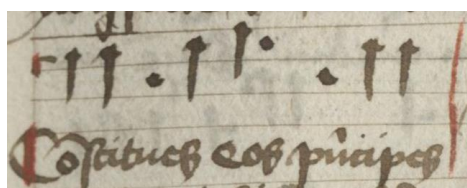 Cōstitues eos pͥncipes